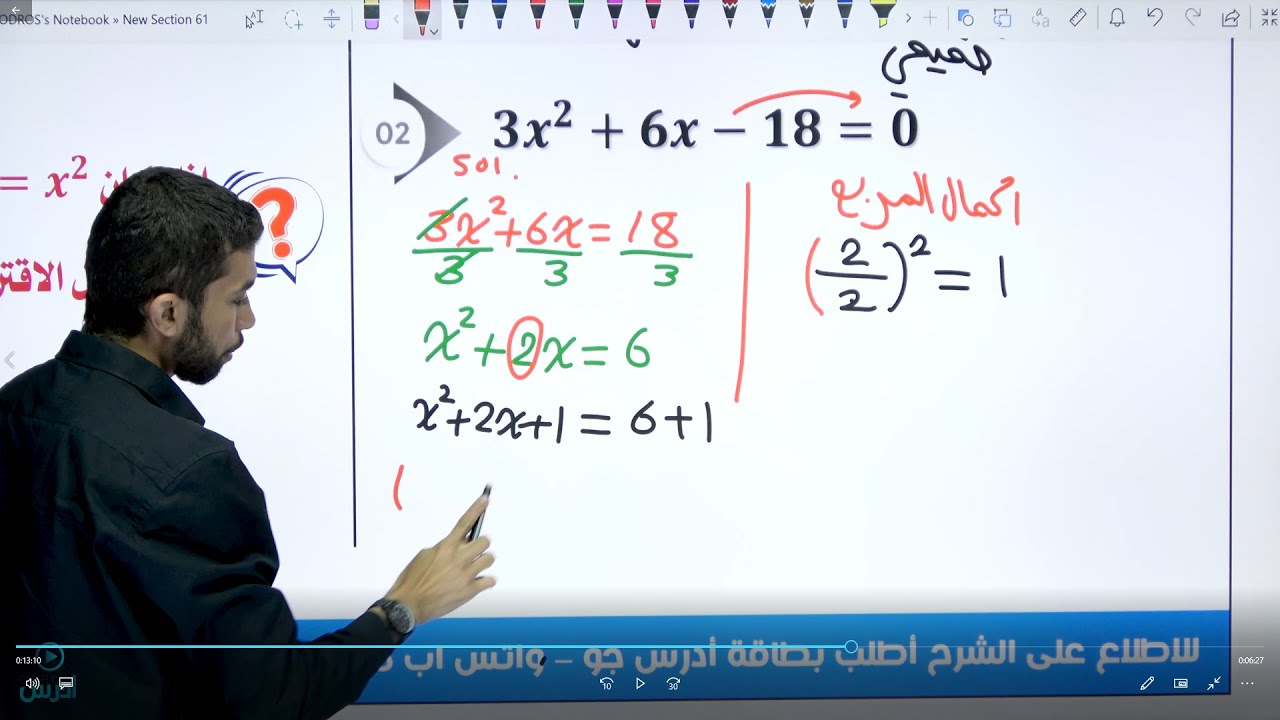 ODROS's Notebook » New Section 61
حقيقي
02
3x² + 6x − 18 = 0
= x²
sol.
3x²+6x=18
3 3 3
x²+2x=6
x²+2x+1=6+1
(
اكمال المربع
(2/2)²=1
?
للاطلاع على الشرح أطلب بطاقة أدرس جو – واتس اب
أدرس
0:13:10
0:06:27
10
30